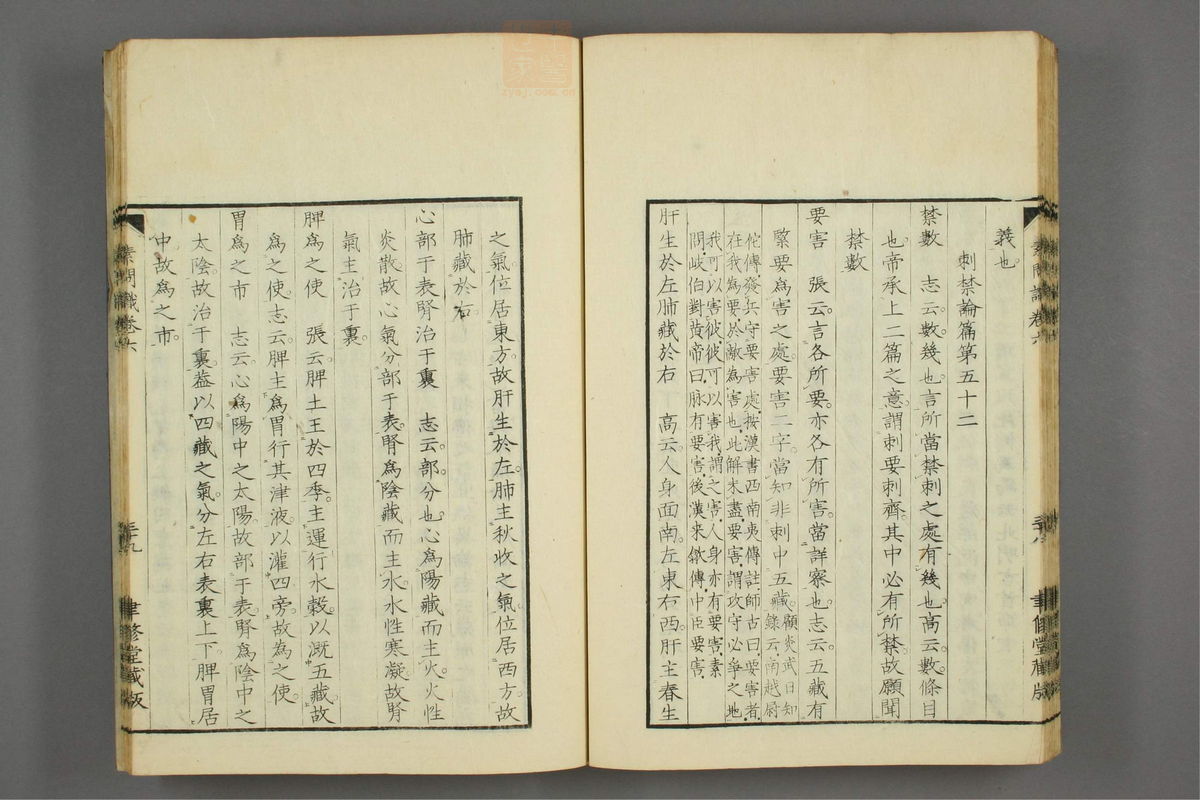 義也。
刺禁論篇第五十二
禁數　志云。數。幾也。言所當禁刺之處有幾也。高云。數。條目
也。帝承上二篇之意。謂刺要刺齊。其中必有所禁。故願聞
禁數
要害　張云。言各所要。亦各有所害。當詳察也。志云。五藏有
緊要爲害之處。要害二字當知非刺中五藏。顧炎武日知
錄云。南越尉
佗傳。發兵守要害處。按漢書西南夷傳註。師古曰。要害者。
在我爲要。於敵爲害也。此解未盡。要害。謂攻守必爭之地。
我可以害彼。彼可以害我。謂之害。人身亦有要害。素
問岐伯對黄帝曰。脉有要害。後漢來歙傳。中臣要害
肝生於左肺藏於右　高云。人身面南。左東右西。肝主春生
之氣。位居東方。故肝生於左。肺主秋收之氣。位居西方。故
肺藏於右。
心部于表腎治于裏　志云。部。分也。心爲陽藏而主火。火性
炎散。故心氣分部于表。腎爲陰藏而主水。水性寒凝。故腎
氣主治于裏。
脾爲之使　張云。脾土王於四季。主運行水穀。以溉五藏。故
爲之使。志云。脾主爲胃行其津液。以灌四旁。故爲之使。
胃爲之市　志云。心爲陽中之太陽。故部于表。腎爲陰中之
太陰。故治于裏。葢以四藏之氣。分左右表裏上下。脾胃居
中。故爲之市。
素問識卷六
三十九
聿修堂藏版